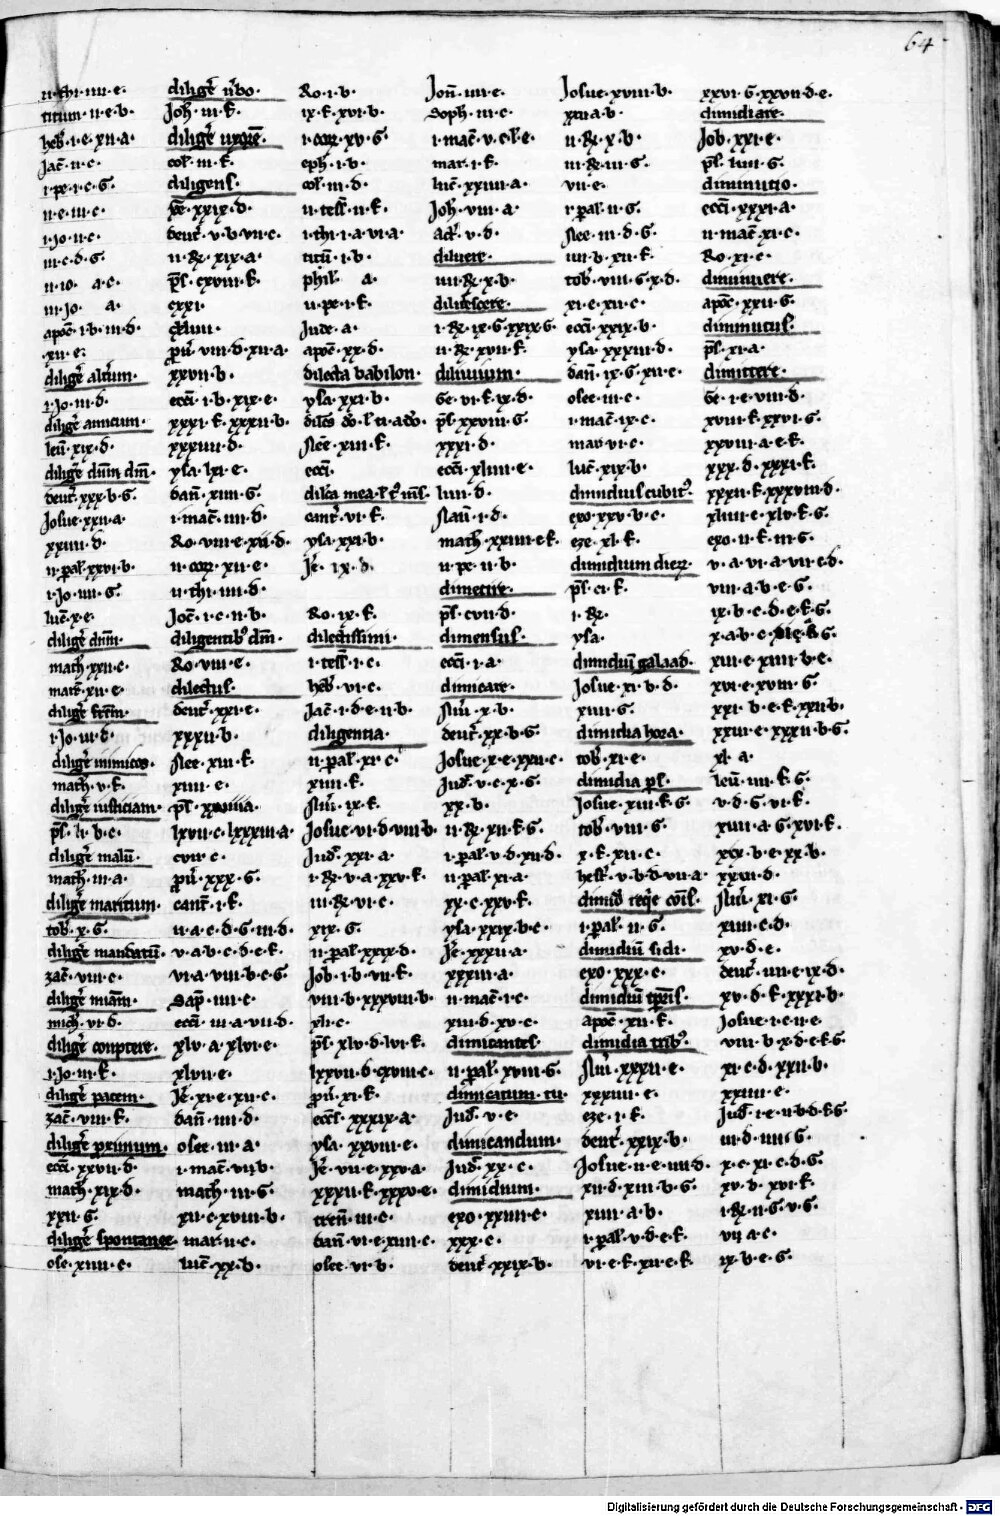 64
ii·thi·iiii·e·
titum·ii·e·b·
heb̄·i·e·xii·a·
Jac̄·ii·c·
i·pe·i·c·G·
ii·e·iii·c·
i·Jo·ii·c·
iii·c·d·G·
ii·io· a·c·
iii·Jo· a·
apoc̄·i·b·iii·d·
·xii·e·
diligēr altīum·
i·Jo·iii·d·
diligēr amicum·
leū·xix·d·
diligēr dn̄m dm̄·
deut̄·xxx·b·G·
Josue·xxii·a·
xxiiii·d·
ii·pal·xxvi·b·
i·Jo·iiii·G·
luc̄·x·e·
diligēr dn̄m·
math·xxii·c·
mar̄·xii·e·
diligēr frēm·
i·Jo·iii·d·
diligēr inimicos·
math·v·f·
diligēr iusticiam·
pl̄·li·b·c·
diligēr malū·
math·iii·a·
diligēr maritum·
tob̄·x·G·
diligēr mandatū·
zac̄·viii·c·
diligēr miām·
mich·vi·d·
diligēr
i·Jo·iii·f·
diligēr pacem·
zac̄·viii·f·
diligēr primum·
ecc̄i·xxvii·d·
math·xix·d·
xxii·G·
diligēr spontanee·
ose·xiiii·e·
diligēr ūbo·
Joh·iii·f·
diligēr uxorē·
col·iii·f·
diligens·
xxix·d·
deut̄·v·b·vii·c·
ii·R·xix·a·
pl̄·cxviii·f·
cxxi·
pū·viii·d·xii·a·
xxvii·b·
ecc̄i·i·b·xix·e·
xxxi·f·xxxii·b·
xxxiiii·d·
ysa·lxi·e·
dan̄·xiiii·G·
i·mac̄·iiii·d·
Ro·viii·e·xii·d·
ii·cor·xii·e·
ii·thi·iiii·d·
Joc̄·i·c·ii·b·
diligentib⁹ dm̄·
Ro·viii·e·
dilectus·
deut̄·xxi·e·
xxxii·b·
Nee·xiii·f·
xiiii·e·
pl̄·
lxvii·c·lxxxiii·a·
cvii·c·
pū·xxx·G·
cant̄·i·f·
ii·a·c·d·G·iii·d·
v·a·b·c·d·e·f·
vi·a·viii·b·c·G·
Sap̄·iiii·c·
ecc̄i·iii·a·vii·d·
xlv·a·xlvi·e·
xlvii·e·
Je·xi·e·xii·c·
dan̄·iiii·d·
osee·iii·a·
i·mac̄·vii·b·
math·iii·G·
xii·c·xviii·b·
mar·ii·c·
luc̄·xx·b·
Ro·i·b·
ix·f·xvi·b·
i·cor·xv·G·
eph·i·b·
col·iii·d·
ii·tess̄·ii·f·
i·thi·i·a·vi·a·
titū·i·b·
phil· a·
ii·pe·i·f·
Jude·a·
apoc̄·xx·d·
dilecta babilon·
ysa·xxi·b·
Nee·xiii·f·
ecc̄i·
cant̄·vi·f·
ysa·xxi·b·
Je· ix·d·
Ro·ix·f·
dilectissimi·
i·tess̄·i·c·
heb̄·vi·c·
Jac̄·i·d·e·ii·b·
diligentia·
ii·pal·xi·c·
xiii·f·
Nū·ix·f·
Josue·vi·d·viii·b·
Jud̄·xxi·a·
i·R·v·a·xxv·f·
iii·R·vi·c·
xix·G·
ii·pal·xxix·d·
Job·i·b·vii·f·
viii·b·xxxviii·b·
xli·c·
pl̄·xlv·d·lvi·f·
lxxvii·d·cxviii·c·
pū·xi·f·
ecc̄i·xxxix·a·
ysa·xxviii·e·
Je·vii·e·xxv·a·
xxxii·f·xxxv·e·
tren̄·iii·c·
dan̄·vi·e·xiiii·c·
osee·vi·b·
Jon̄·iiii·e·
Soph·iii·c·
i·mac̄·v·c·l·e·
mar·i·f·
luc̄·xxiiii·a·
Joh·viii·a·
act·v·d·
diluere·
iiii·R·x·b·
dilucescere·
i·R·ix·G·xxix·G·
ii·R·xvii·f·
diluuium·
Ge·vi·f·ix·d·
pl̄·xxviii·G·
xxxi·d·
ecc̄i·xliiii·e·
liiii·d·
Naū·i·d·
math·xxiiii·e·f·
ii·pe·ii·b·
dimetire·
pl̄·cvii·d·
dimensus·
ecc̄i·i·a·
dimicare·
Nū·x·b·
deut̄·xx·b·G·
Josue·x·e·xxii·c·
Jud̄·v·c·x·G·
xx·b·
ii·R·xii·f·G·
i·pal·v·d·xii·d·
ii·pal·xi·a·
xx·c·xxv·f·
ysa·xxix·b·c·
Je·xxxii·a·
xxxiii·a·
ii·mac̄·i·c·
xiii·d·xv·c·
dimicantes·
ii·pal·xviii·G·
dimicatum·
Jud̄·v·e·
dimicandum·
Jud̄·xx·c·
dimidium·
exo·xxiiii·c·
xxx·c·
deut̄·xxix·b·
Josue·xviii·b·
xxii·a·b·
ii·R·x·b·
iii·R·iii·G·
vii·e·
i·pal·ii·G·
Nee·iii·d·G·
iiii·b·xii·f·
tob̄·viii·G·x·d·
xi·e·xii·c·
ecc̄i·xxix·b·
ysa·xxxiii·d·
dan̄·ix·G·xii·e·
osee·iii·c·
i·mac̄·ix·c·
mar·vi·c·
luc̄·xix·b·
dimidius cubit⁹·
exo·xxv·b·c·
eze·xl·f·
dimidium dier·
pl̄·ci·f·
i·R·
ysa·
dimidiū galaad·
Josue·xi·b·d·
xiiii·G·
dimidia hora·
tob̄·xi·e·
dimidia ps·
Josue·xiii·f·G·
tob̄·viii·G·
x·f·xii·c·
hest̄·v·b·d·vii·a·
i·pal·ii·G·
dimidiū sicli·
exo·xxx·c·
dimidiū tp̄ris·
apoc̄·xii·f·
dimidia trib⁹·
Nū·xxxii·e·
xxxiiii·e·
eze·i·f·
deut̄·xxix·b·
Josue·ii·e·iiii·d·
xii·d·xiii·b·G·
xiiii·a·b·
i·pal·v·d·e·f·
vi·e·f·xii·e·f·
xxvi·G·xxvii·d·e·
dimidiare·
Job·xxi·e·
pl̄·liiii·G·
diminutio·
ecc̄i·xxxi·a·
ii·mac̄·xi·c·
Ro·xi·c·
diminuere·
apoc̄·xxii·G·
diminutus·
pl̄·xi·a·
dimittere·
Ge·i·e·viii·d·
xviii·f·xxvi·G·
xxviii·a·e·f·
xxx·d·xxxi·f·
xxxii·f·xxxviii·d·
xliiii·e·xlv·f·G·
exo·ii·f·iii·G·
v·a·vi·a·vii·c·d·
viii·a·b·e·G·
ix·b·c·d·e·f·G·
xiii·e·xiiii·b·e·
xvi·e·xviii·G·
xxi·b·e·f·xxii·b·
xxiii·e·xxxii·b·G·
xl·a·
leū·iiii·f·G·
v·d·G·vi·f·
xiiii·a·G·xvi·f·
xix·b·e·xx·b·
xxvi·d·
Nū·xi·G·
xiiii·c·d·
xv·d·e·
deut̄·iiii·e·ix·d·
xv·d·f·xxxi·b·
Josue·i·c·ii·e·
viii·b·x·d·e·f·G·
xi·c·d·xxii·b·
xxiiii·e·
Jud̄·i·e·ii·b·d·f·G·
iii·d·iiii·G·
x·c·xi·c·d·G·
xv·b·xvi·f·
i·R·ii·G·v·G·
vii·a·c·
ix·b·e·G·
Digitalisierung gefördert durch die Deutsche Forschungsgemeinschaft - DFG